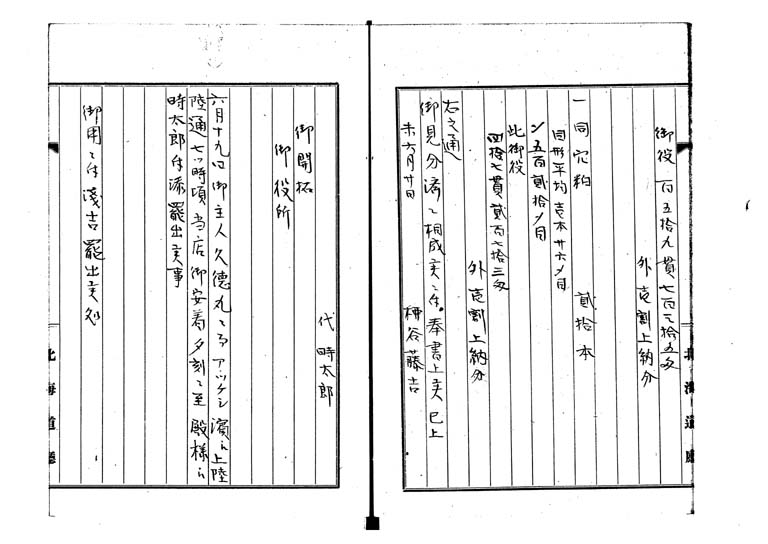 御役 一百五拾九貫七百三拾五匁
外 壱割上納分
一 同穴粕 貳拾本
同形平均壱本廿六〆目
〆五百貳拾〆目
此御役
四拾七貫貳百七拾三匁
外 壱割上納分
右之通
御見分済ニ相成候ニ付奉書上候 已上
未六月廿日 柄谷藤吉
北海道廳
代 時太郎
御開拓
御役所
六月十九日御主人久徳丸ニ而アッケシ濱江上陸
陸通七ッ時頃当店御安着夕刻ニ至 殿様江
時太郎付添罷出候事
御用ニ付淺吉罷出候処
北海道廳